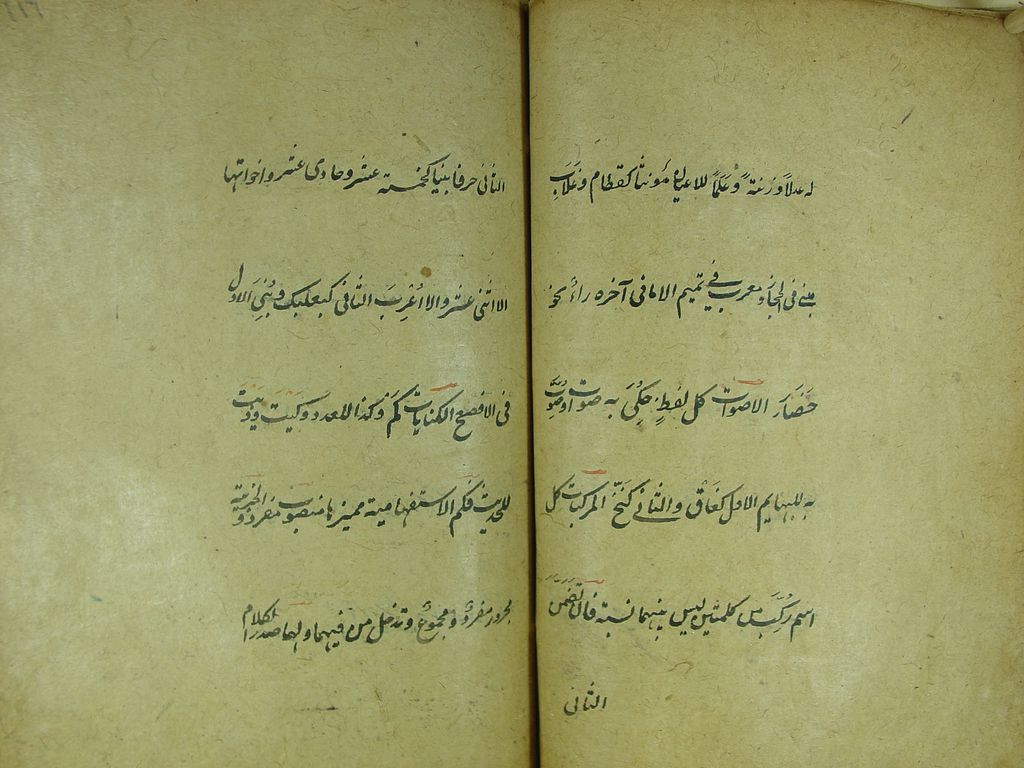 له عدلا وزنة وعلما للاعيان مونثا كقطام وغلاب
مبنى فى الحجاز ومعرب فى تميم الا ما فى آخره راء نحو
حضار الاصوات كل لفظ حكى به صوت او صوت
به للبهايم الاول كغاق والثانى كنخ المركبات كل
اسم ركب من كلمتين ليس بينهما نسبة فان تضمن
الثانى
الثانى حرفا بنيا كخمسة عشر وحادى عشر واخواتها
الا اثنى عشر والا اعرب الثانى كبعلبك وبنى الاول
فى الافصح الكنايات كم وكذا للعدد وكيت وذيت
للحديث فكم الاستفهامية مميزها منصوب مفرد والخبرية
مجرور مفرد ومجموع وتدخل من فيهما ولهما صدر الكلام